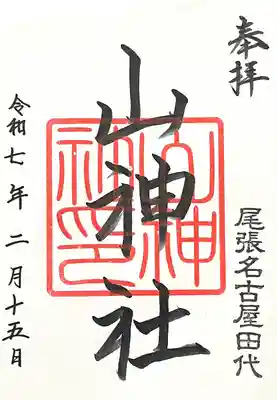 奉拝
尾張名古屋田代
山神社
令和七年二月十五日